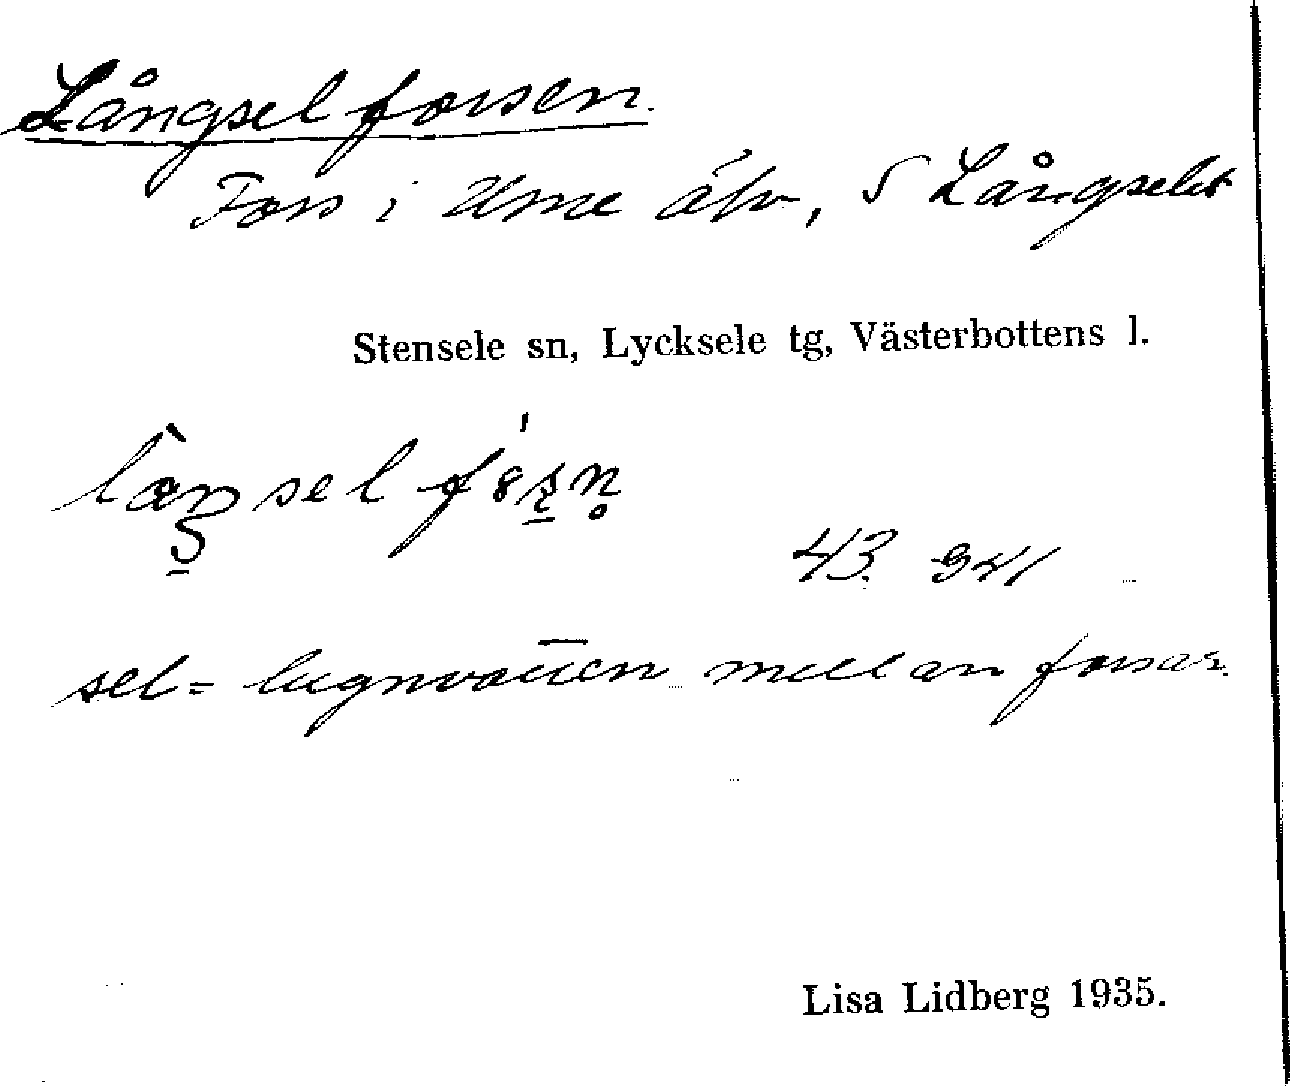 Långselforsen.
Fors i Ume älv, S Långselet
Stensele sn, Lycksele tg, Västerbottens l.
43. 941
sel = lugnvatten mellan forsar.
Lisa Lidberg 1935.